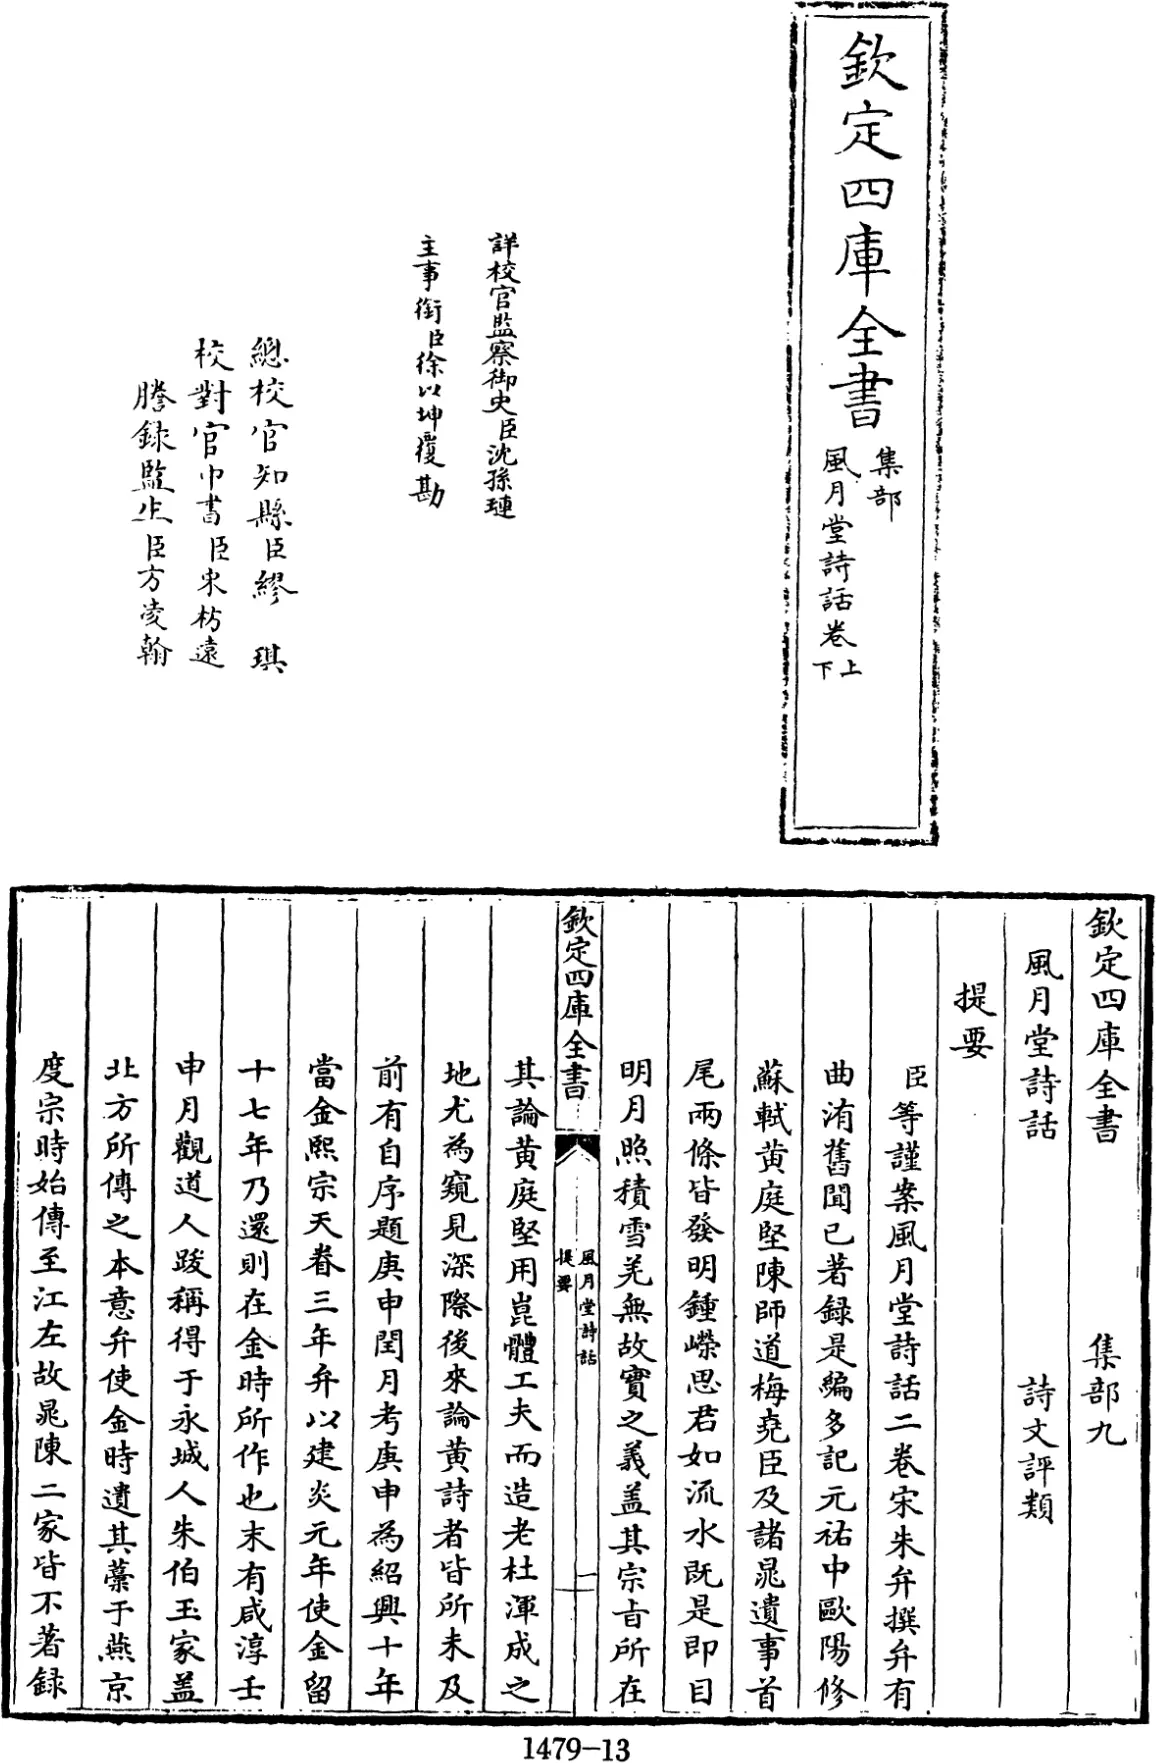 欽定四庫全書
集部
風月堂詩話卷上下
詳校官監察御史臣沈孫璉
主事銜臣徐以坤覆勘
總校官知縣臣繆琪
校對官中書臣宋枋遠
謄錄監生臣方凌翰
欽定四庫全書 集部九
風月堂詩話 詩文評類
提要
臣等謹案風月堂詩話二卷宋朱弁撰弁有
曲洧舊聞已著録是編多記元祐中歐陽修
蘇軾黄庭堅陳師道梅堯臣及諸晁遺事首
尾兩條皆發明鍾嶸思君如流水既是即目
明月照積雪羌無故實之義蓋其宗旨所在
欽定四庫全書
風月堂詩話
提要
一
其論黄庭堅用崑體工夫而造老杜渾成之
地尤為窺見深際後來論黄詩者皆所未及
前有自序題庚申閏月考庚申為紹興十年
當金熙宗天眷三年弁以建炎元年使金留
十七年乃還則在金時所作也末有咸淳壬
申月觀道人跋稱得于永城人朱伯玉家蓋
北方所傳之本意弁使金時遺其藁于燕京
度宗時始傳至江左故晁陳二家皆不著録
1479-13